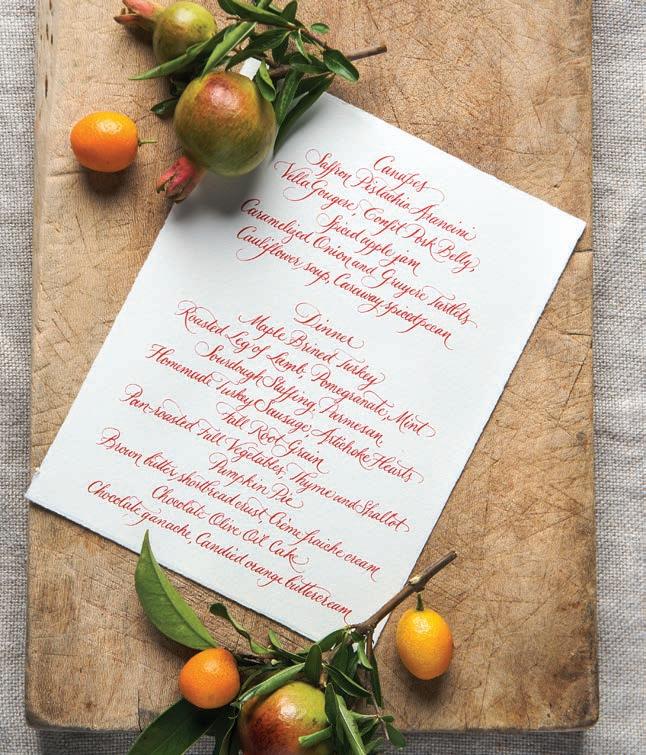 Canapes
Saffron Pistachio Arancini
Vella Gougere, Confit Pork Belly,
Spiced apple jam
Caramelized Onion and Gruyere Tartlets
Cauliflower soup, Caraway spiced pecan
Dinner
Maple Brined Turkey
Roasted Leg of Lamb, Pomegranate, Mint
Sourdough Stuffing, Parmesan
Homemade Turkey Sausage Artichoke Hearts
Fall Root Grain
Pan-roasted Fall Vegetables, Thyme and Shallot
Pumpkin Pie
Brown butter shortbread crust, Crème fraiche cream
Chocolate Olive Oil Cake
Chocolate ganache, Candied orange buttercream